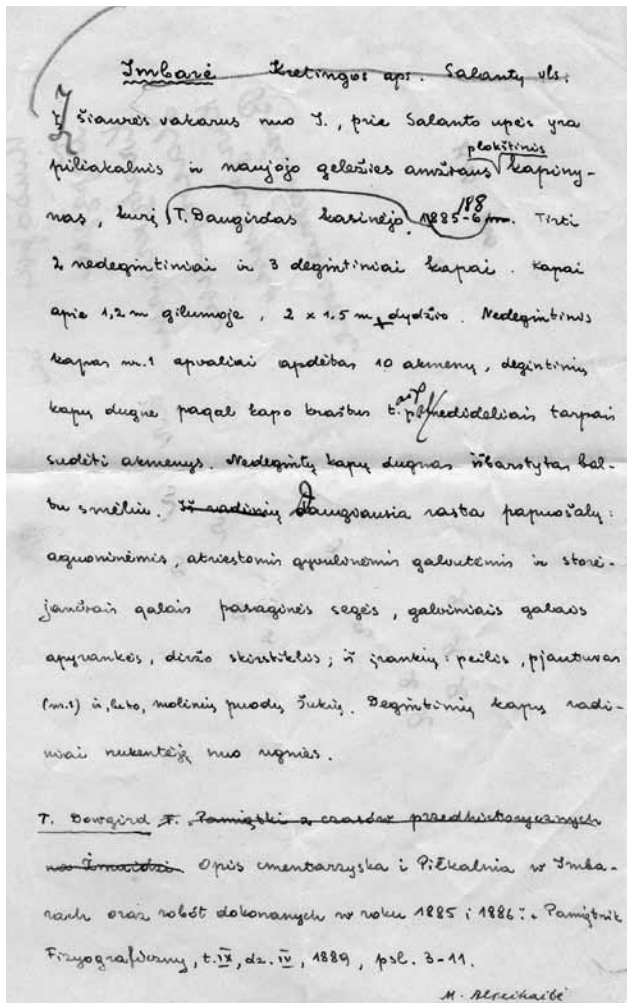 Imbarė Kretingos aps. Salantų vls.
Į šiaurės vakarus nuo I., prie Salanto upės yra
piliakalnis ir naujojo geležies amžiaus plokštinis kapiny-
nas, kurį T. Daugirdas kasinėjo 1885-6 m. Tirti
2 nedegintiniai ir 3 degintiniai kapai. Kapai
apie 1,2 m gilumoje, 2 x 1,5 m dydžio. Nedegintinis
kapas nr. 1 apvaliai apdėtas 10 akmenų, degintinių
kapų dugne pagal kapo kraštus nedideliais tarpais
sudėti akmenys. Nedegintų kapų dugnas išbarstytas bal-
tu smėliu. Iš radinių Daugiausia rasta papuošalų:
aguoninėmis, atriestomis gyvulinėmis galvutėmis ir storė-
jančiais galais pasaginės segės, galviniais galais
apyrankės, diržo skirstiklis; iš įrankių: peilis, pjautuvas
(nr. 1) ir, be to, molinių puodų šukių. Degintinių kapų radi-
niai nukentėję nuo ugnies.
T. Dowgird F. Pamiątki z czasów przedhistorycznych
na Żmudzi Opis cmentarzyska i Piłkalnia w Imba-
rach oraz robót dokonanych w roku 1885 i 1886. Pamiętnik
Fizyograficzny, t. IX, dz. IV, 1889, psl. 3-11.
M. Alseikaitė